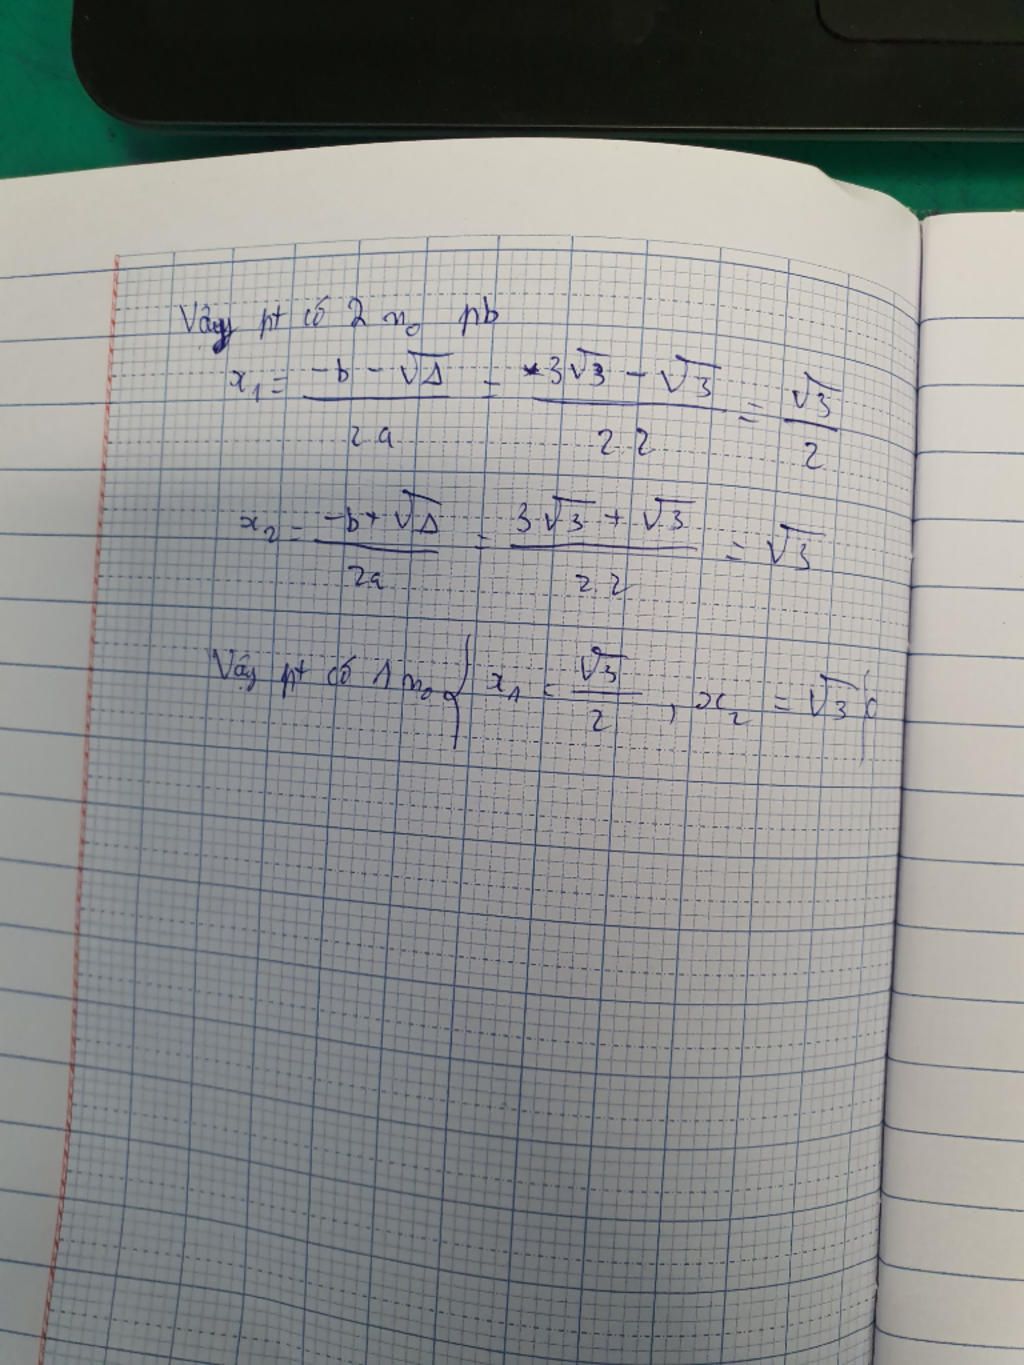 Vậy pt có 2 n₀ pb
x₁ = (-b - √Δ)/(2a) = (3√3 - √3)/(2.2) = √3/2
x₂ = (-b + √Δ)/(2a) = (3√3 + √3)/(2.2) = √3
Vậy pt có 1 n₀ { x₁ = √3/2, x₂ = √3 }